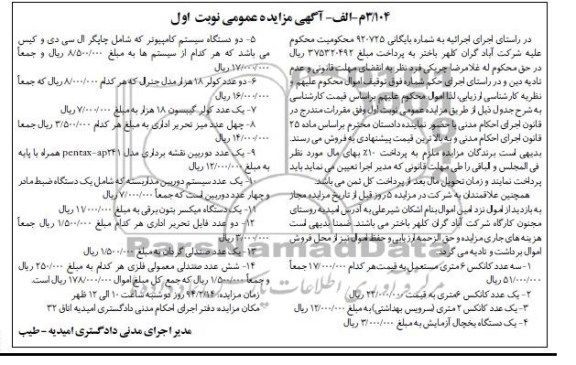 ۳/۱۰۴/م-الف- آگهی مزایده عمومی نوبت اول
در راستای اجرای اجرائیه به شماره بایگانی ۹۲۰۷۲۵ محکومیت محکوم
علیه شرکت آباد گران کلهر باختر به پرداخت مبلغ ۳۷۵۳۲۰۴۹۲ ریال
در حق محکوم له غلامرضا چریکی فرد نظر به انقضای مهلت قانونی و عدم
تادیه دین و در راستای اجرای حکم شماره فوق توقیف اموال محکوم علیهم و
نظریه کارشناسی ارزیابی، لذا اموال محکوم علیهم براساس قیمت کارشناسی
به شرح جدول ذیل از طریق مزایده عمومی نوبت اول وفق مقررات مندرج در
قانون اجرای احکام مدنی با حضور نماینده دادستان محترم براساس ماده ۲۵
قانون اجرای احکام مدنی و به بالاترین قیمت پیشنهادی به فروش می رسند.
بدیهی است برندگان مزایده ملزم به پرداخت ۱۰٪ بهای مال مورد نظر
فی المجلس و الباقی را طی مهلت قانونی که مدیر اجرا تعیین می نماید باید
پرداخت نمایند و زمان تحویل مال بعد از پرداخت کل ثمن می باشد.
همچنین علاقمندان به شرکت در مزایده ۵ روز قبل از تاریخ مزایده مجاز
به بازدید از اموال نزد امین اموال بنام اشکان شیرعلی به آدرس امیدیه روستای
مجنون کارگاه شرکت آباد گران کلهر باختر می باشند. ضمنا بدیهی است
هزینه های جاری مزایده و حق الزحمه ارزیابی و حفظ اموال نیز از محل فروش
اموال برداشت و تادیه می گردد.
۱- سه عدد کانکس ۶ متری مستعمل به قیمت هر کدام ۱۷/۰۰۰/۰۰۰ جمعاً
۵۱/۰۰۰/۰۰۰ ریال
۲- یک عدد کانکس ۶ متری به قیمت ۲۲/۰۰۰/۰۰۰ ریال
۳- یک عدد کانکس ۲ متری (سرویس بهداشتی) به مبلغ ۱۲/۰۰۰/۰۰۰ ریال
۴- یک دستگاه یخچال آزمایش به مبلغ ۳/۰۰۰/۰۰۰ ریال
۵- دو دستگاه سیستم کامپیوتر که شامل چاپگر ال سی دی و کیس
می باشد که هر کدام از سیستم ها به مبلغ ۸/۵۰۰/۰۰۰ ریال و جمعاً
۱۷/۰۰۰/۰۰۰ ریال
۶- دو عدد کولر ۱۸ هزار مدل جنرال که هر کدام ۸/۰۰۰/۰۰۰ ریال که جمعاً
۱۶/۰۰۰/۰۰۰ ریال
۷- یک عدد کولر گیبسون ۱۸ هزار به مبلغ ۷/۰۰۰/۰۰۰ ریال
۸- چهل عدد میز تحریر اداری به مبلغ هر کدام ۳/۵۰۰/۰۰۰ ریال جمعاً
۱۴/۰۰۰/۰۰۰ ریال
۹- یک عدد دوربین نقشه برداری مدل pentax-ap۲۴۱ همراه با پایه
به مبلغ ۱۲/۰۰۰/۰۰۰ ریال
۱۰- یک عدد سیستم دوربین مداربسته که شامل یک دستگاه ضبط مادر
و چهار عدد دوربین است که جمعاً ۷/۰۰۰/۰۰۰ ریال
۱۱- یک دستگاه میکسر بتون برقی به مبلغ ۱۷/۰۰۰/۰۰۰ ریال
۱۲- دو عدد فایل تحریر اداری هر کدام به مبلغ ۱/۵۰۰/۰۰۰ ریال جمعاً
۳/۰۰۰/۰۰۰ ریال
۱۳- یک عدد صندلی گردان به مبلغ ۱/۵۰۰/۰۰۰ ریال
۱۴- شش عدد صندلی معمولی فلزی هر کدام به مبلغ ۲۵۰/۰۰۰ ریال
و جمعاً ۱/۵۰۰/۰۰۰ ریال که جمع کل مبلغ اموال ۱۷۸/۰۰۰/۰۰۰ ریال است.
زمان مزایده: ۹۴/۲/۱۴ روز دوشنبه ساعت ۱۰ الی ۱۲ ظهر
مکان مزایده: دفتر اجرای احکام مدنی دادگستری امیدیه اتاق ۳۲
مدیر اجرای مدنی دادگستری امیدیه - طیب
ParsNamadData